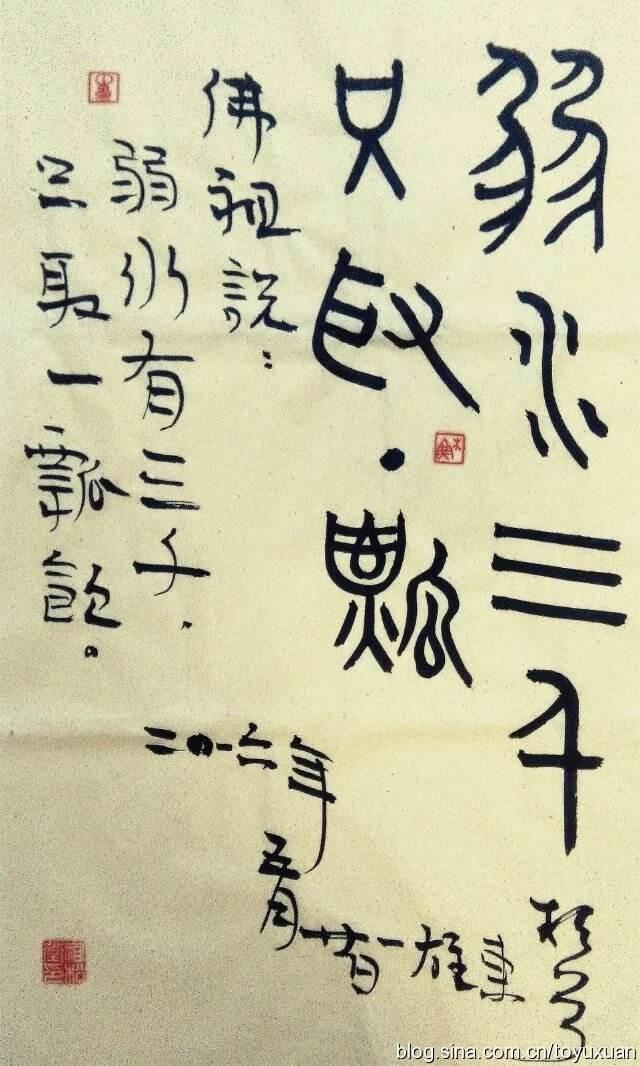 弱水三千
只取·瓢
佛祖說：
弱水有三千，
只取一瓢飲。
二〇一六年
五月
廿一
blog.sina.com.cn/toyuxuan